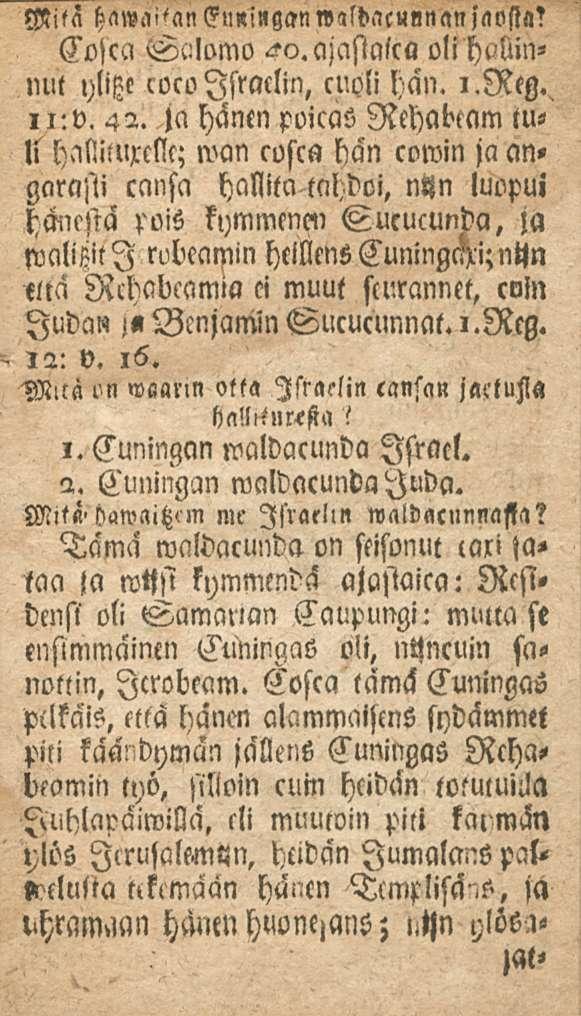 Mitä hawaitan Cuningan waldacunnan jaosta?
Cosca Salomo 40. ajastaica oli hallin-
nut ylitze coco Israelin, cuoli hän. 1. Reg.
11: v. 42. ja hänen poicas Rehabeam tu-
li hallituxelle; wan cosca hän cowin ja an-
garasti cansa hallita tahdoi, nijn luopui
hänestä pois kymmenen Sucucunda, ja
walitzit J robeamin heillens Cuningaxi; nijn
että Rehabeamia ei muut seurannet, cuin
Judan ja Benjamin Sucucunnat. 1. Reg.
12: v. 16.
Mitä on waarin otta Israelin cansan jaetusta
hallituxesta?
1. Cuningan waldacunda Israel.
2. Cuningan waldacunda Juda.
Mitä hawaitzem me Israelin waldacunnassa?
Tämä waldacunda on seisonut caxi sa-
taa ja wijsi kymmendä ajastaica: Resi-
densi oli Samarian Caupungi: mutta se
ensimmäinen Cuningas oli, nijncuin sa-
nottin, Jerobeam. Cosca tämä Cuningas
pelkäis, että hänen alammaisens sydämmet
piti käändymän jällens Cuningas Reha-
beamin työ, silloin cuin heidän totutuilla
Juhlapäiwillä, eli muutoin piti käymän
ylös Jerusalemijn, heidän Jumalans pal-
welusta tekemään hänen Templisäns, ja
uhramaan hänen huonesans; nijn ylösa-
jat-